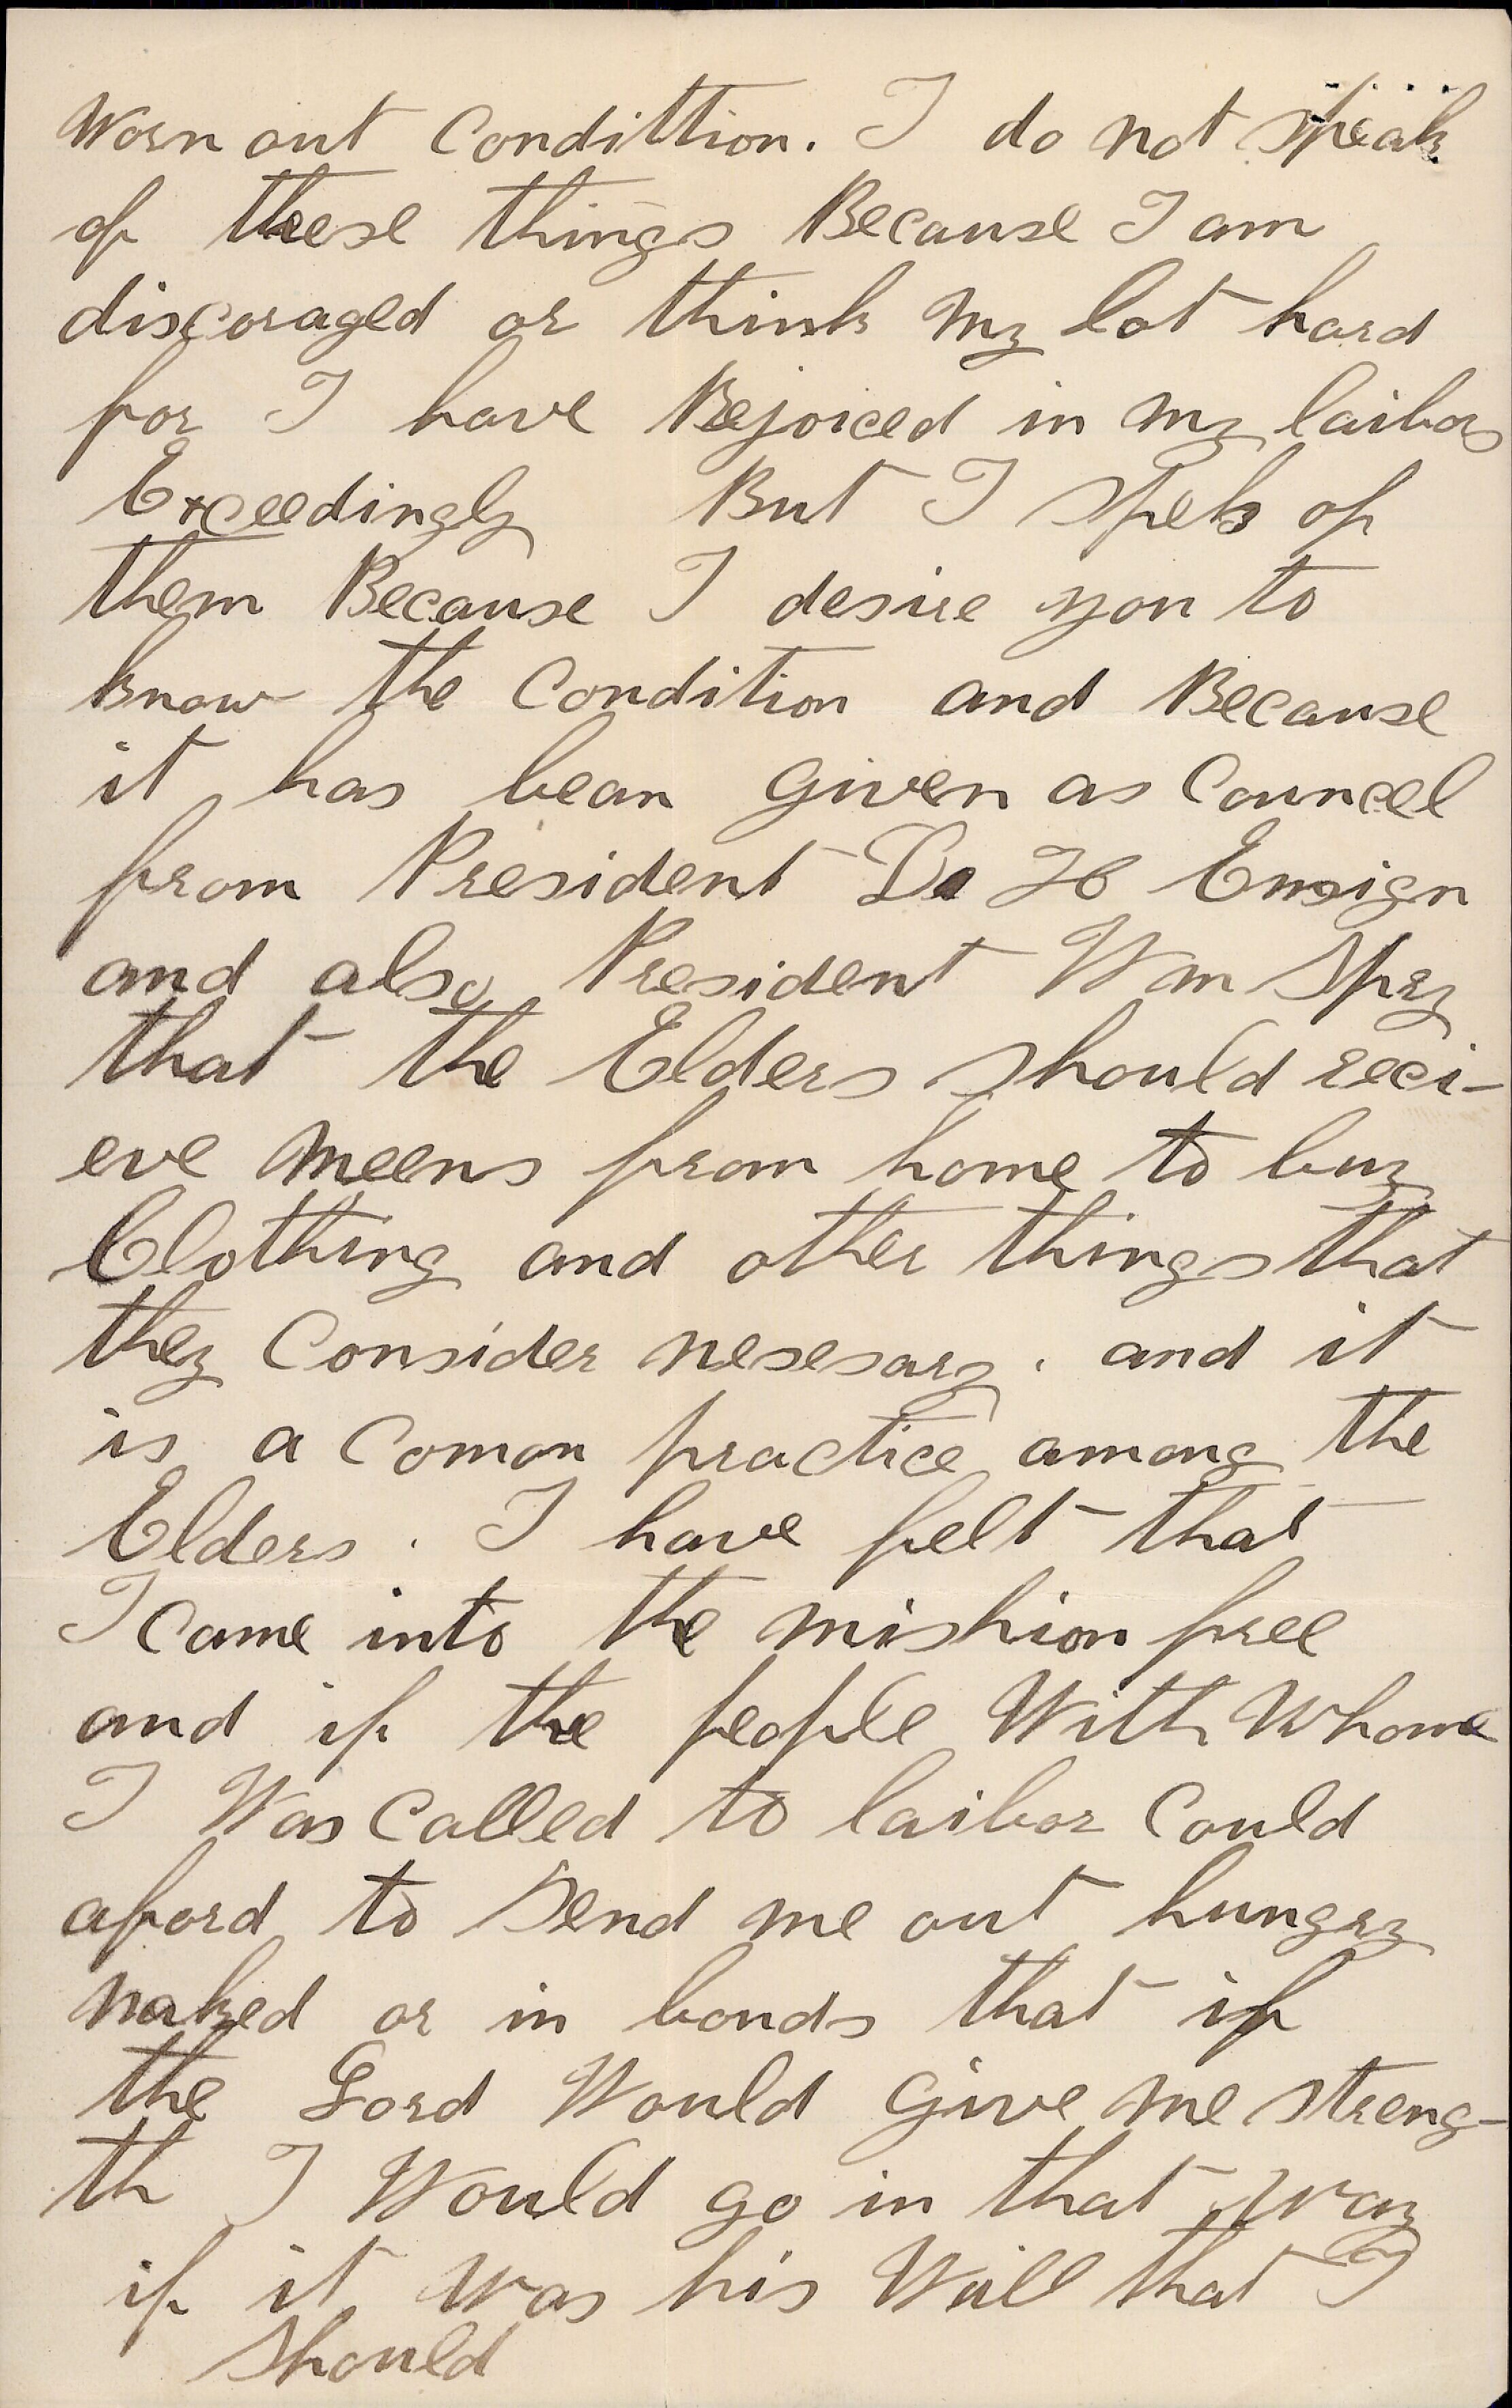 Worn out Condittion. I do not speak
of these things Because I am
discoraged or think my lot hard
for I have Rejoiced in my laibors
Exceedingly But I spek of
them Because I desire you to
know the Condition and Because
it has bean given as Councel
from President D H Ensign
and also President Wm Spry
that the Elders should reci-
eve meens from home to buy
Clothing and other things that
they Consider nesesary. and it
is a Comon practice among the
Elders. I have felt that
I Came into the mishion free
and if the people With Whome
I Was Called to laibor Could
aford to Send me out hungry
naked or in bonds that if
the Lord Would give me streng-
th I Would go in that way
if it was his Will that I
should